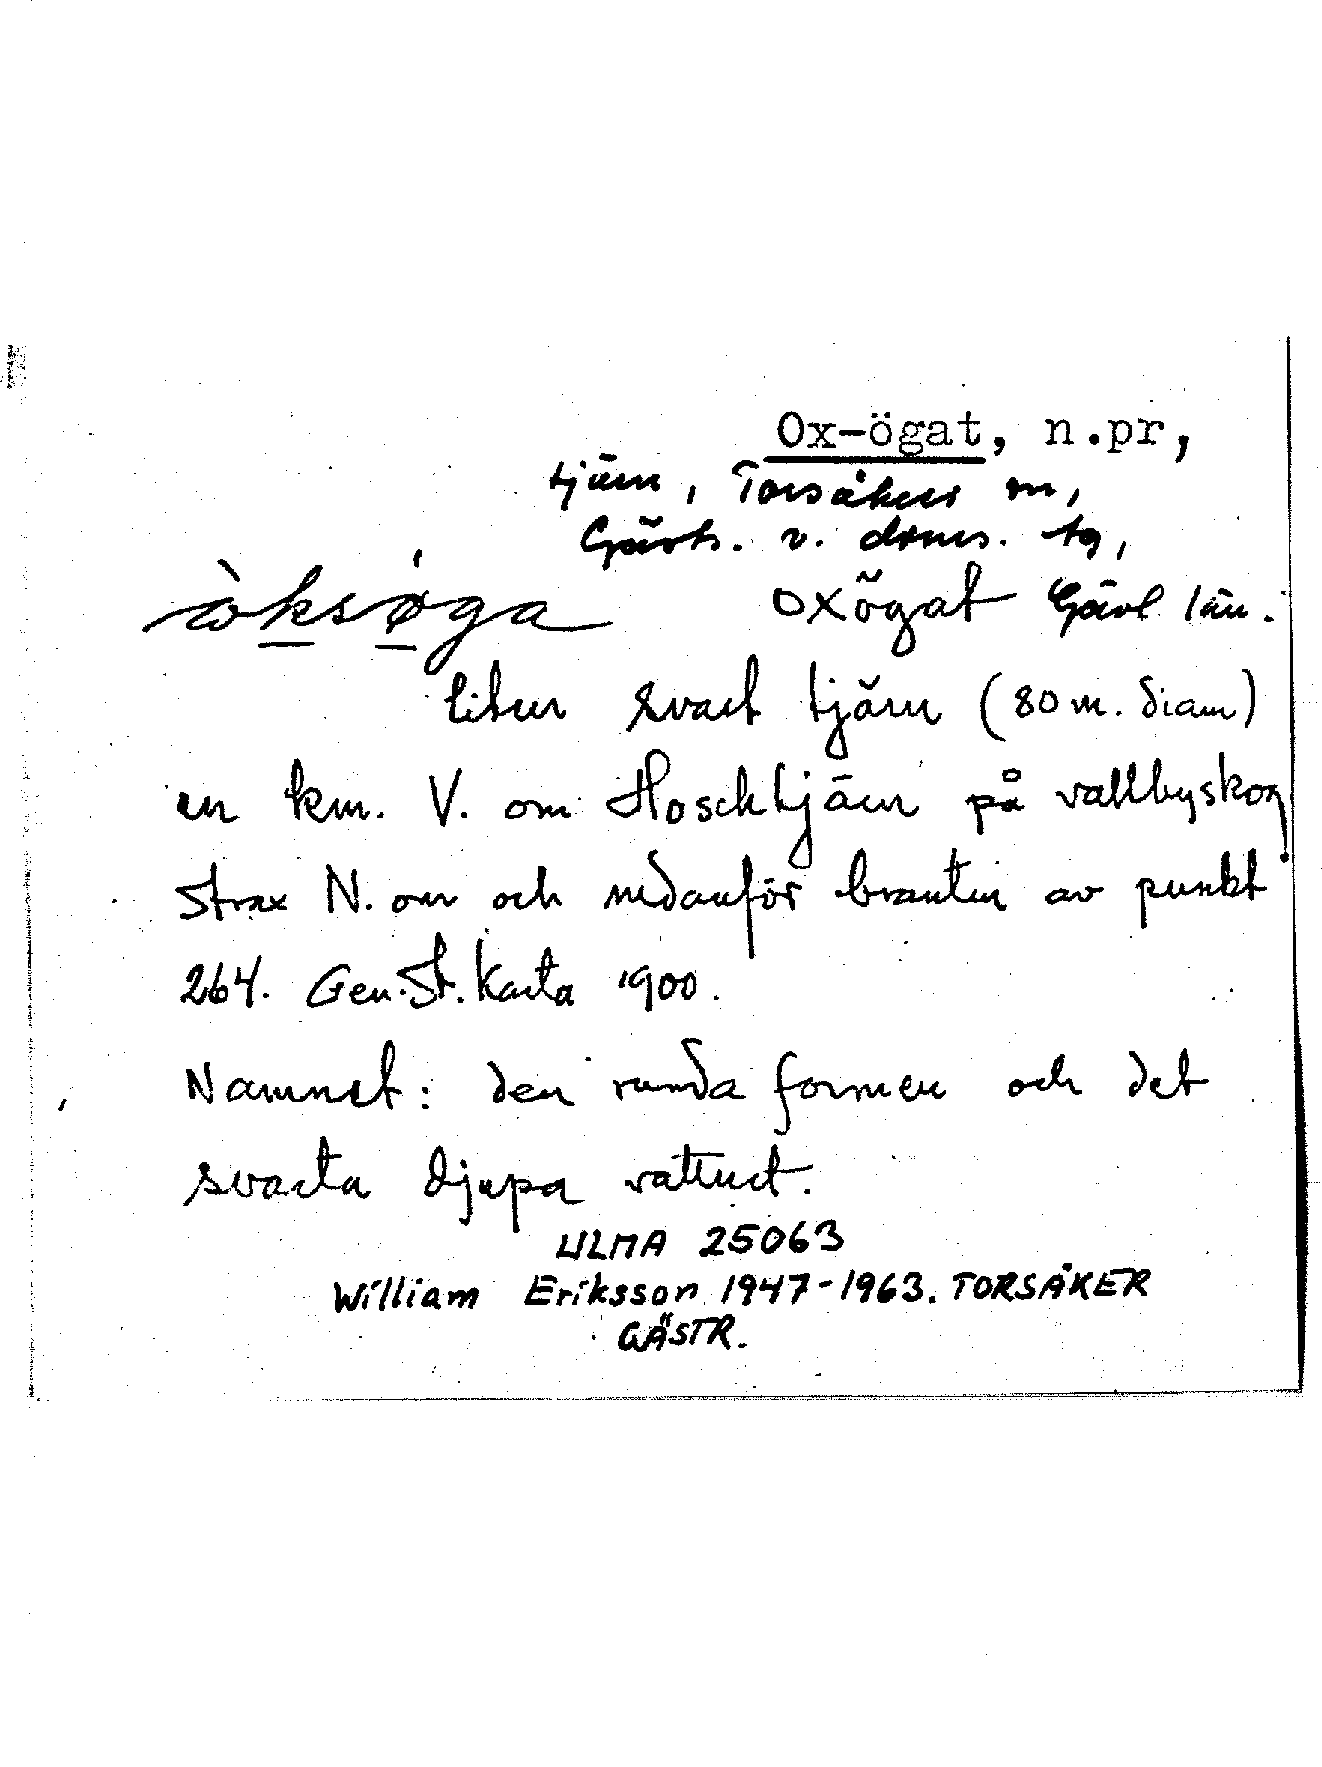 Ox-ögat, n.pr,
tjärn, Torsåkers sn,
Gästr. v. doms. tg,
òksǿga oxögat Gävl län.
liten svart tjärn (80 m. diam)
en km. V. om Hoschtjärn på vallbyskog
strax N. om och nedanför branten av punkt
264. Gen.St. Karta 1900.
Namnet: den runda formen och det
svarta djupa vattnet.
ULMA 25063
William Eriksson 1947-1963. TORSÅKER
GÄSTR.